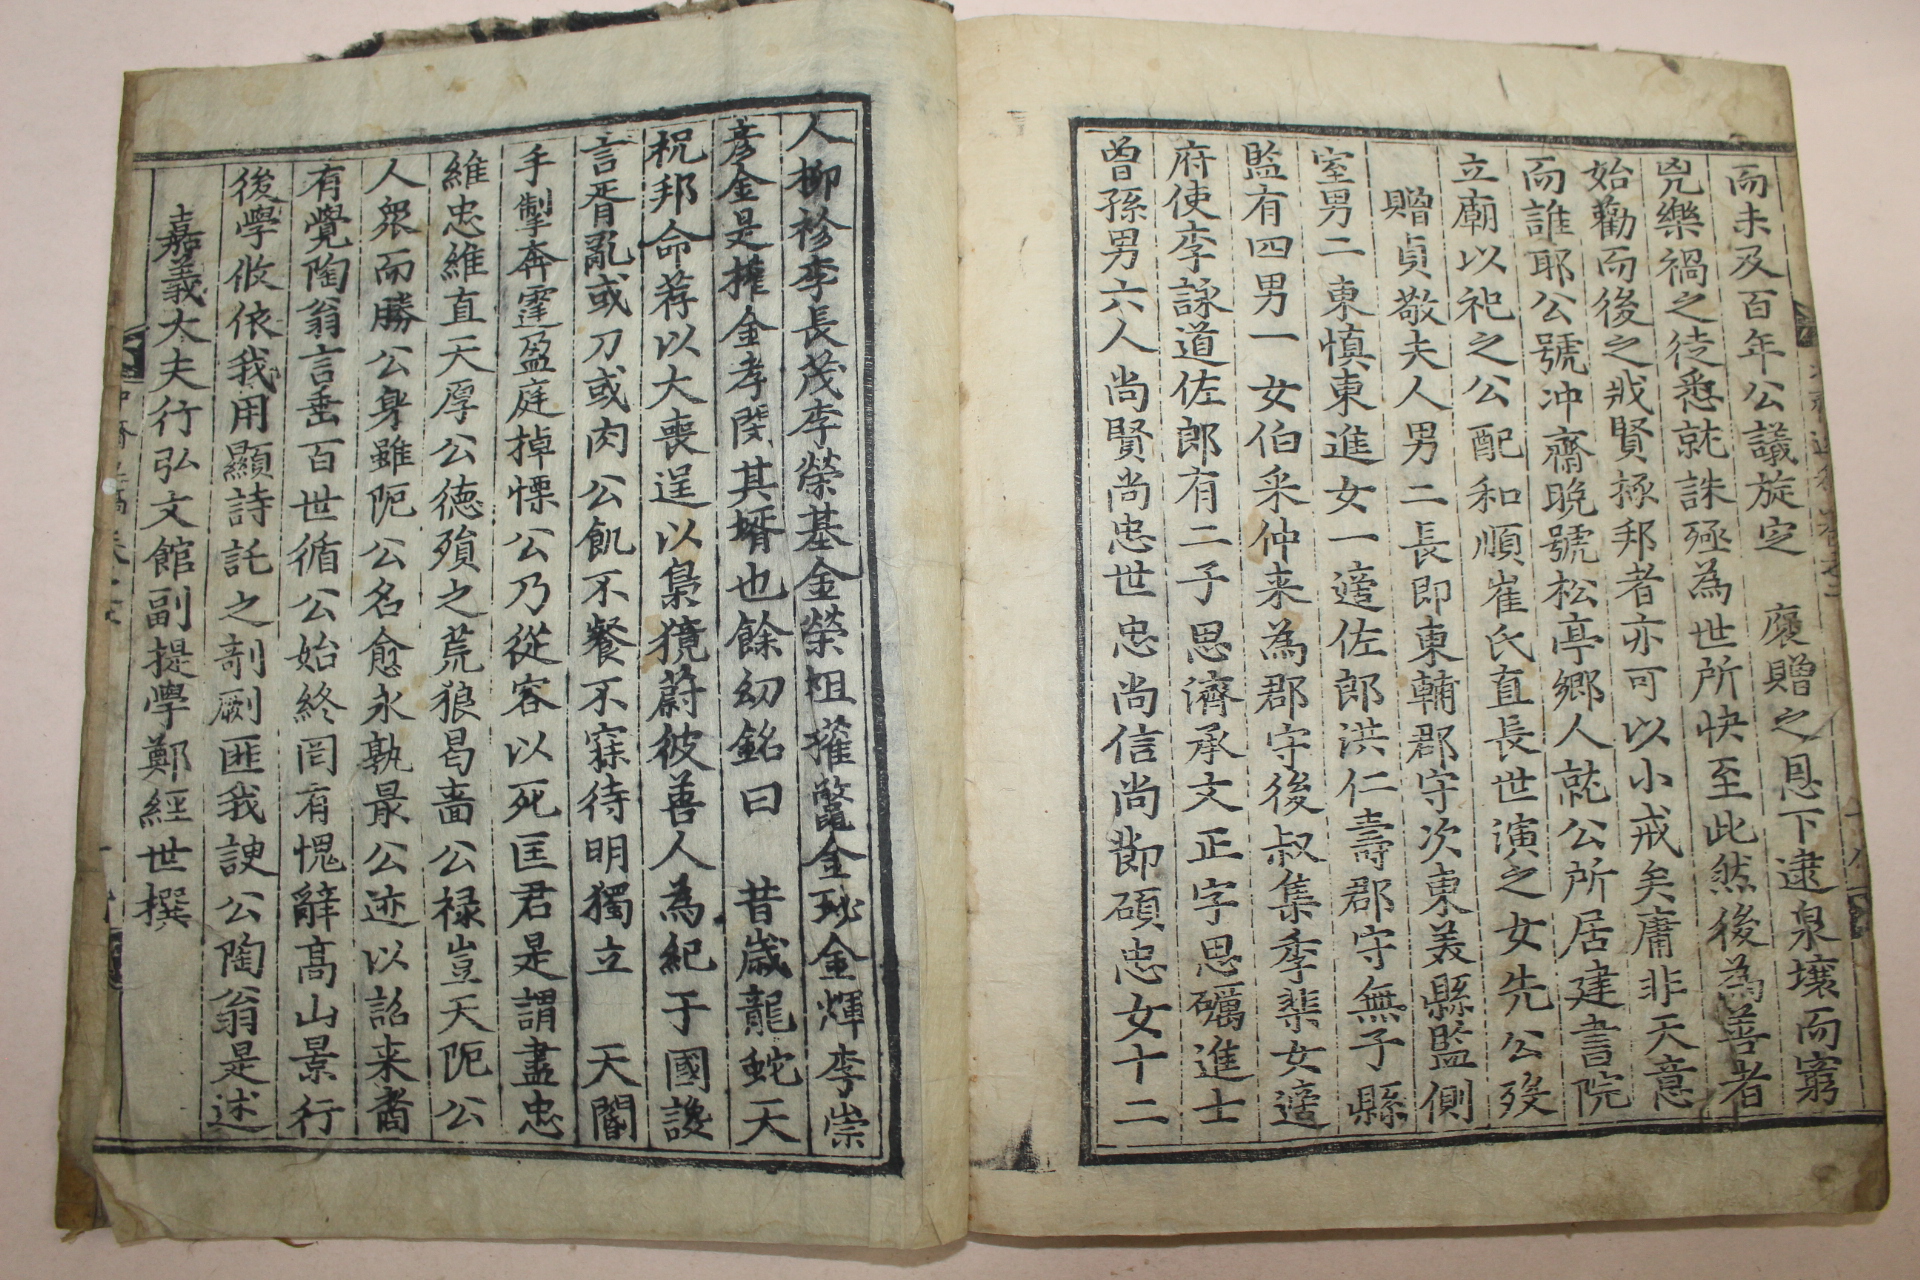 而未及百年公議旋定 褒贈之恩下逮泉壤而窮
兇樂禍之徒悉就誅殛為世所快至此然後為善者
始勸而後之戕賢拯邦者亦可以小戒矣庸非天意
而誰耶公號冲齋晩號松亭鄉人就公所居建書院
立廟以祀之公配和順崔氏直長世演之女先公歿
贈貞敬夫人男二長即東輔郡守次東美縣監側
室男二東慎東進女一適佐郎洪仁壽郡守無子縣
監有四男一女伯采仲来為郡守後叔集季棐女適
府使李詠道佐郎有二子思濟承文正字思礪進士
曾孫男六人尚賢尚忠世忠尚信尚節碩忠女十二
人柳袗李長茂李榮基金榮祖權鼈金珌金輝李崇
彥金是權金孝閔其壻也餘幼銘曰 昔歲龍蛇天
祝邦命荐以大喪逞以梟獍蔚彼善人為紀于國讒
言胥亂或刀或肉公飢不餐不寐待明獨立 天閽
手掣奔霆盈庭掉慄公乃從容以死匡君是謂盡忠
維忠維直天厚公德殞之荒狼曷嗇公祿豈天阨公
人衆而勝公身雖阨公名愈永孰最公迹以詔来者
有覺陶翁言垂百世循公始終罔有愧辭高山景行
後學攸依我用顯詩託之剞劂匪我諛公陶翁是述
嘉義大夫行弘文館副提學鄭經世撰